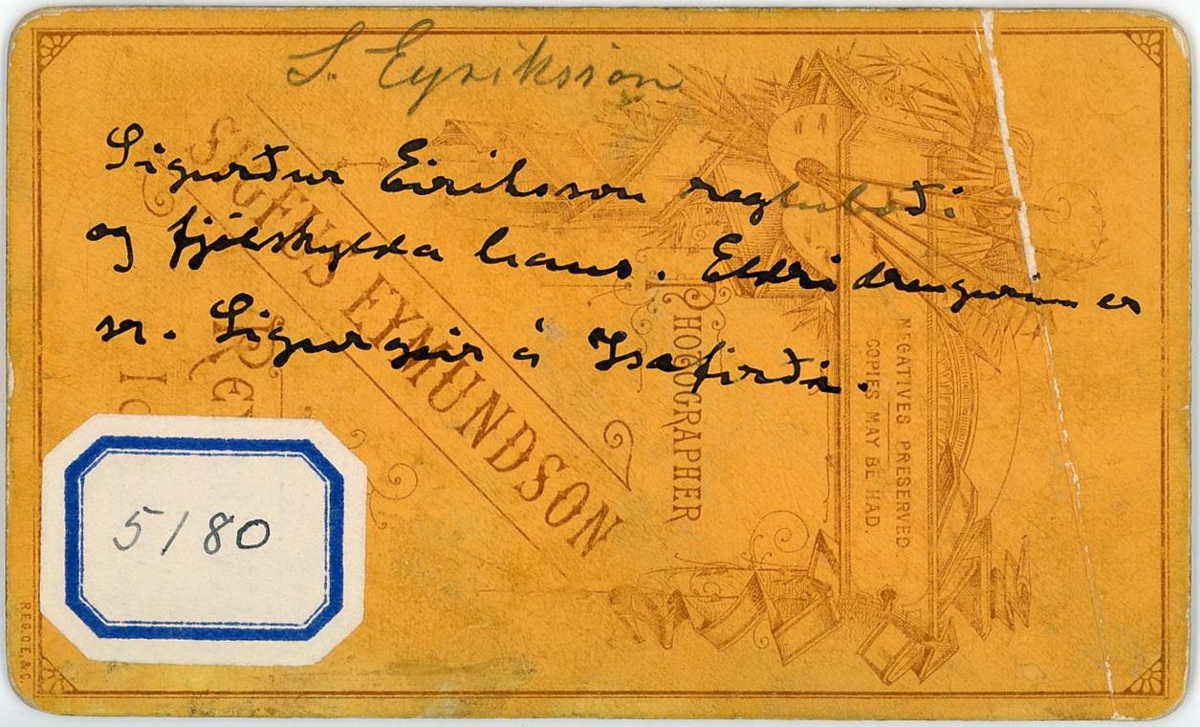 S. Eyriksson
Sigurður Eiriksson regluboði
og fjölskylda hans. Eldri drengurinn er
sr. Sigurgeir á Ísafirði.
SIGFÚS EYMUNDSON
PHOTOGRAPHER
NEGATIVES PRESERVED
COPIES MAY BE HAD.
5/80